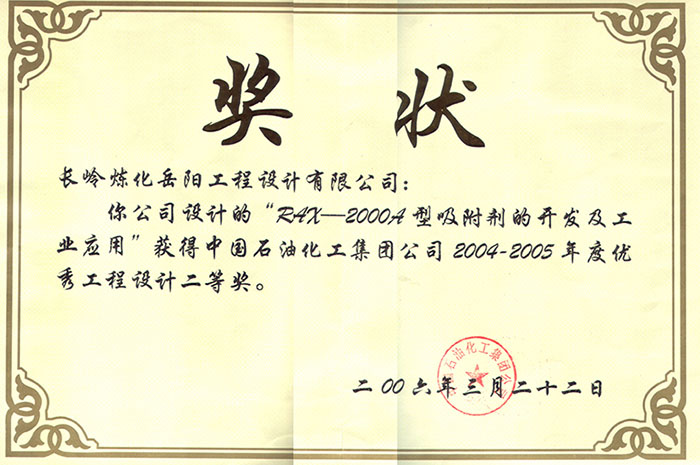 奖 状
长岭炼化岳阳工程设计有限公司：
你公司设计的“RAX—2000A型吸附剂的开发及工
业应用”获得中国石油化工集团公司2004-2005年度优
秀工程设计二等奖。
二00六年三月二十二日